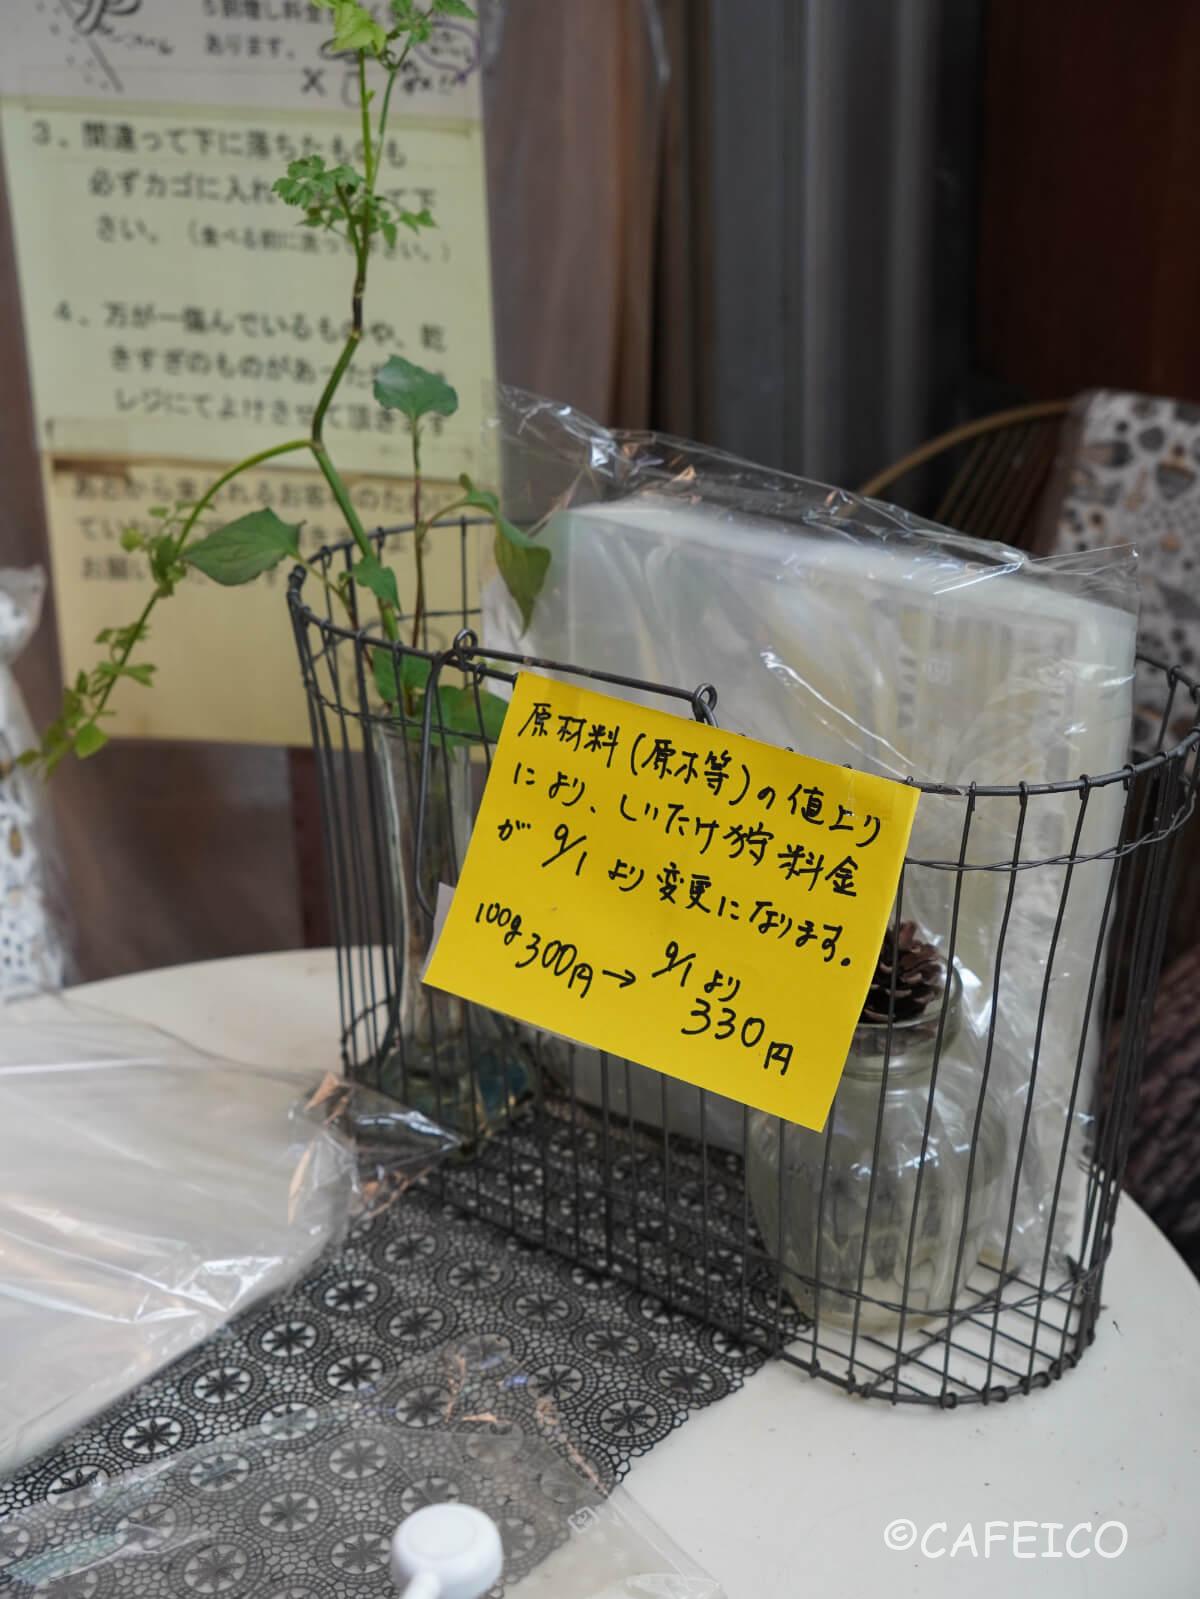 5割増し料金
あります。
3、間違って下に落ちたものも
必ずカゴに入れ て下
さい。(食べる前に洗って下さい。)
4、万が一傷んでいるものや、乾
きすぎのものがあった
レジにてよけさせて頂きます
あとから来られるお客様のために
お願い
原材料(原木等)の値上り
により、しいたけ狩料金
が9/1より変更になります。
100g 300円→9/1より
330円
©CAFEICO